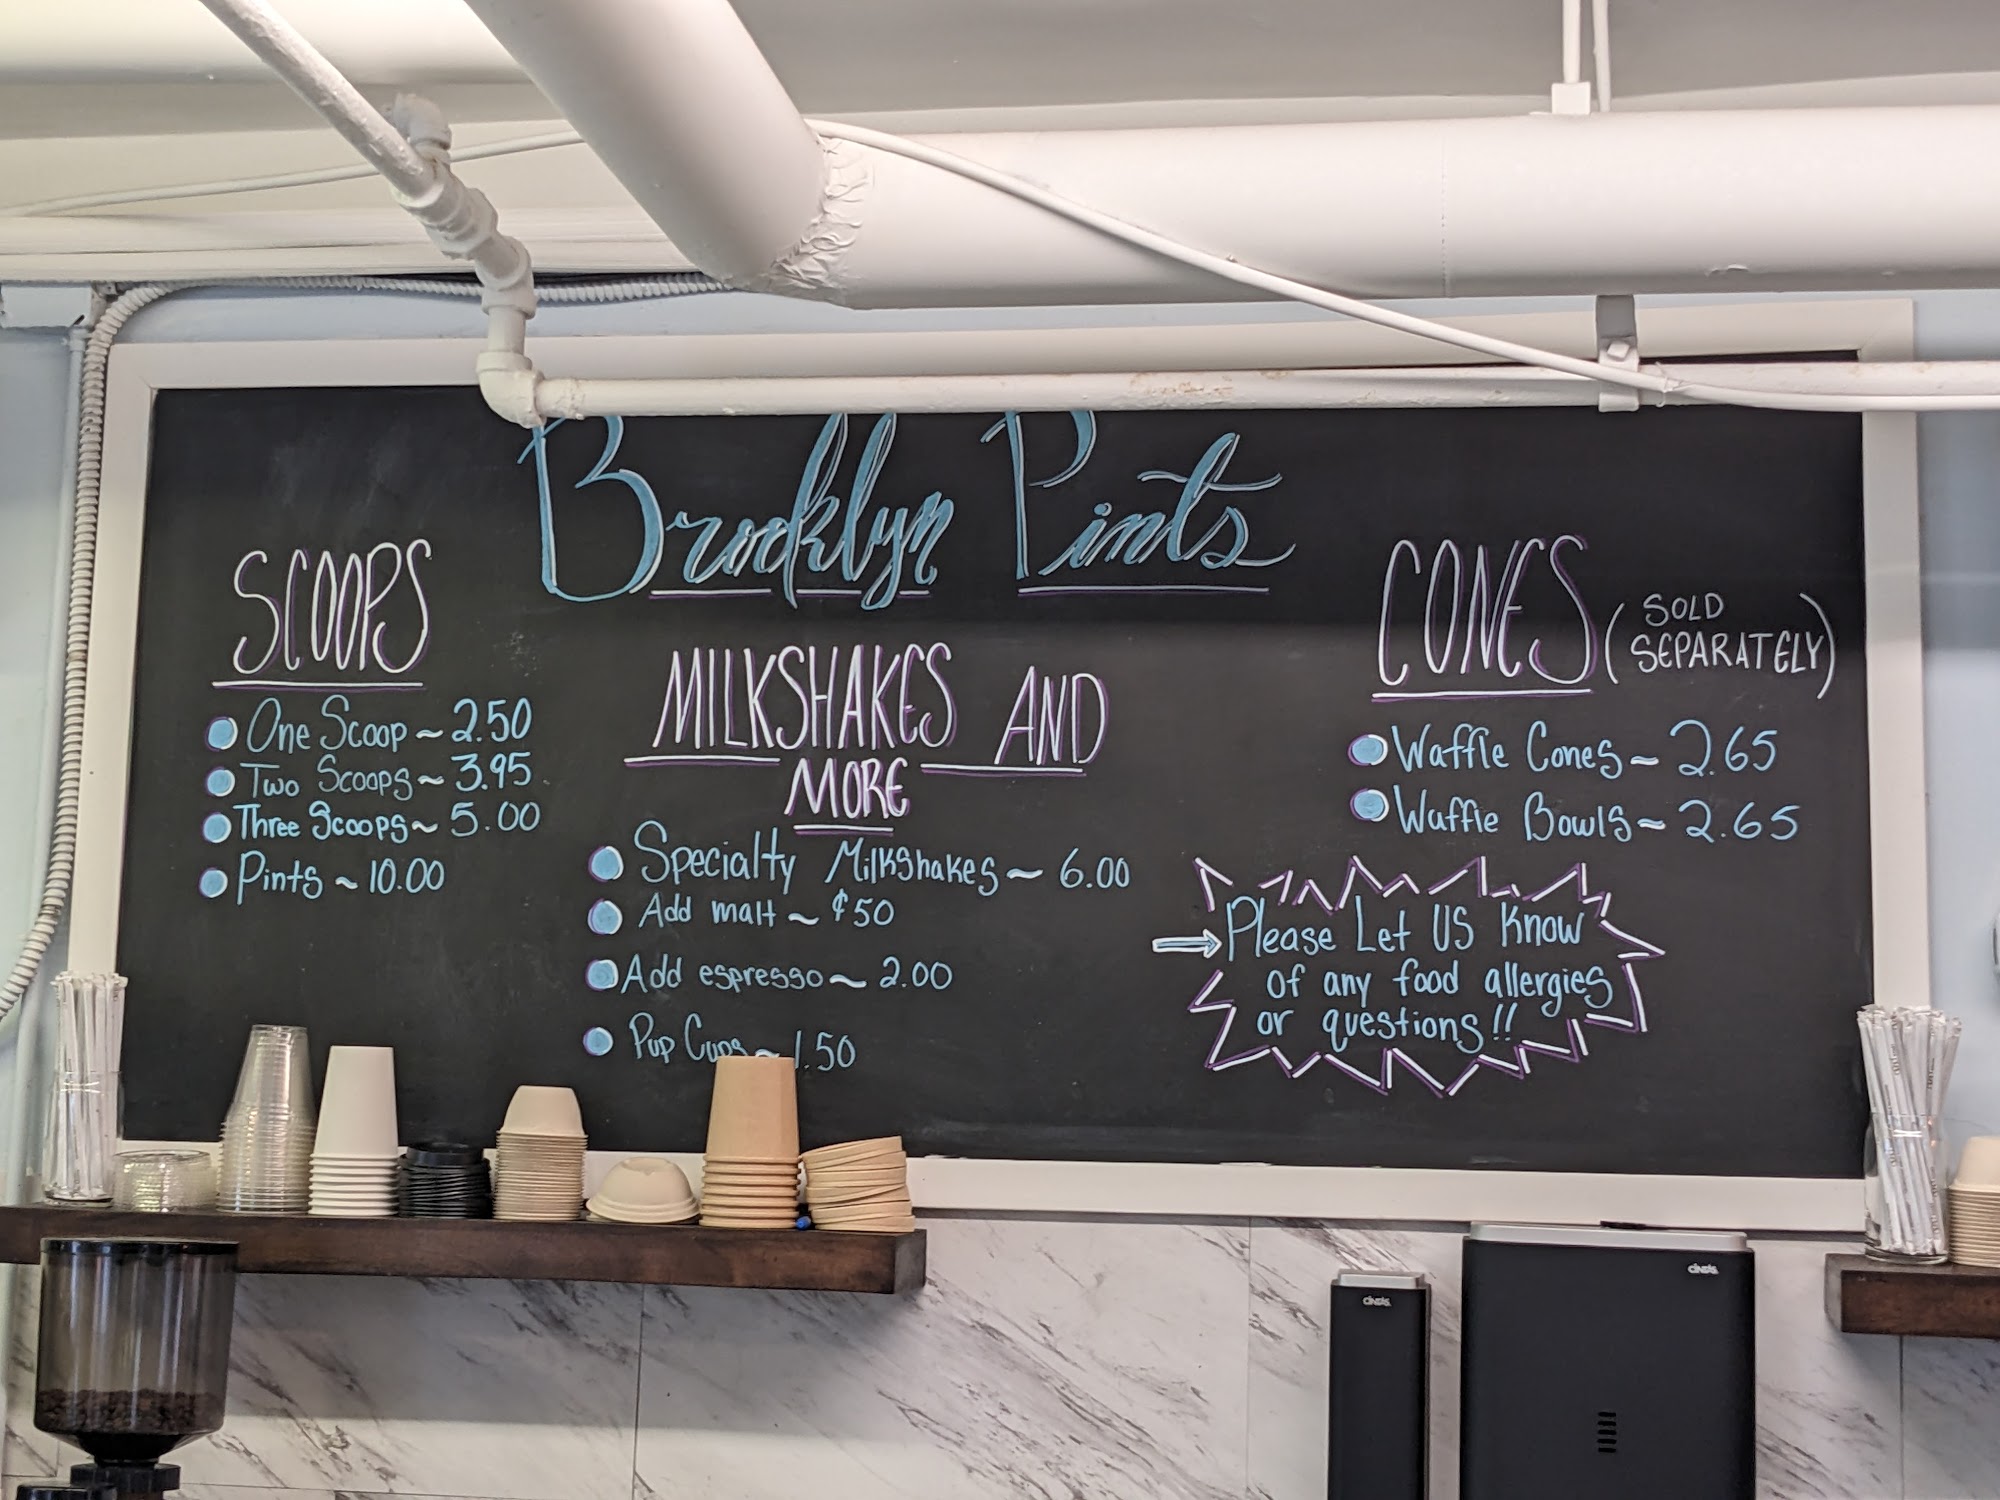 Brooklyn Pints
SCOOPS
One Scoop ~ 2.50
Two Scoops ~ 3.95
Three Scoops ~ 5.00
Pints ~ 10.00
MILKSHAKES AND
MORE
Specialty Milkshakes ~ 6.00
Add malt ~ ¢50
Add espresso ~ 2.00
Pup Cups ~ 1.50
CONES (SOLD
SEPARATELY)
Waffle Cones ~ 2.65
Waffle Bowls ~ 2.65
Please Let US Know
of any food allergies
or questions!!